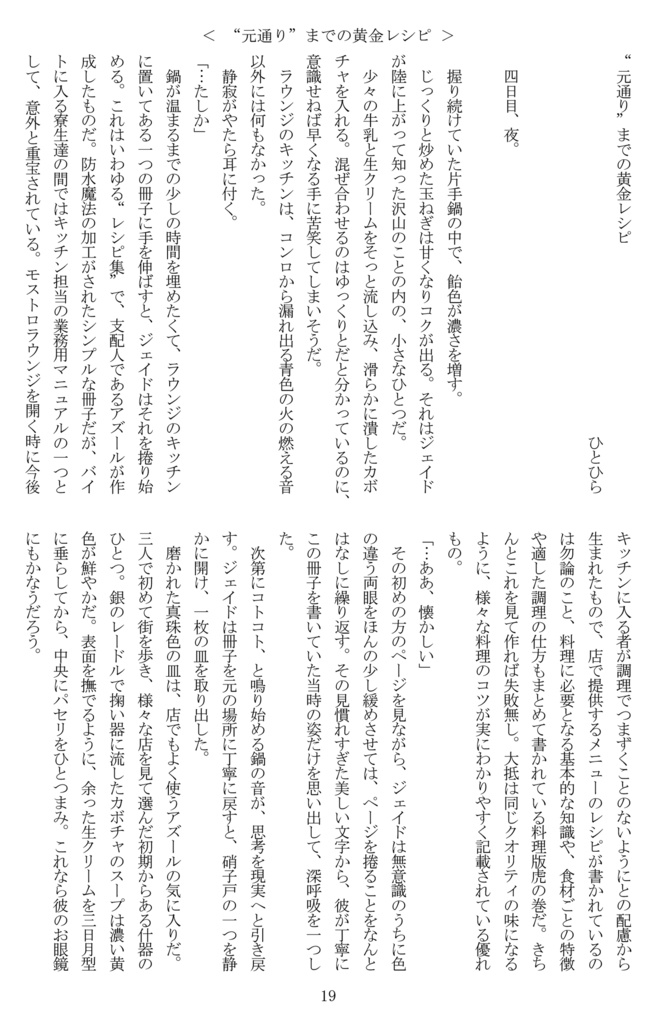 < “元通り”までの黄金レシピ >
“元通り”までの黄金レシピ
ひとひら
四日目、夜。
握り続けていた片手鍋の中で、飴色が濃さを増す。
じっくりと炒めた玉ねぎは甘くなりコクが出る。それはジェイド
が陸に上がって知った沢山のことの内の、小さなひとつだ。
少々の牛乳と生クリームをそっと流し込み、滑らかに潰したカボ
チャを入れる。混ぜ合わせるのはゆっくりとだと分かっているのに、
意識せねば早くなる手に苦笑してしまいそうだ。
ラウンジのキッチンは、コンロから漏れ出る青色の火の燃える音
以外には何もなかった。
静寂がやたら耳に付く。
「…たしか」
鍋が温まるまでの少しの時間を埋めたくて、ラウンジのキッチン
に置いてある一つの冊子に手を伸ばすと、ジェイドはそれを捲り始
める。これはいわゆる“レシピ集”で、支配人であるアズールが作
成したものだ。防水魔法の加工がされたシンプルな冊子だが、バイ
トに入る寮生達の間ではキッチン担当の業務用マニュアルの一つと
して、意外と重宝されている。モストロラウンジを開く時に今後
キッチンに入る者が調理でつまずくことのないようにとの配慮から
生まれたもので、店で提供するメニューのレシピが書かれているの
は勿論のこと、料理に必要となる基本的な知識や、食材ごとの特徴
や適した調理の仕方もまとめて書かれている料理版虎の巻だ。きち
んとこれを見て作れば失敗無し。大抵は同じクオリティの味になる
ように、様々な料理のコツが実にわかりやすく記載されている優れ
もの。
「…ああ、懐かしい」
その初めの方のページを見ながら、ジェイドは無意識のうちに色
の違う両眼をほんの少し緩めさせては、ページを捲ることをなんと
はなしに繰り返す。その見慣れすぎた美しい文字から、彼が丁寧に
この冊子を書いていた当時の姿だけを思い出して、深呼吸を一つし
た。
次第にコトコト、と鳴り始める鍋の音が、思考を現実へと引き戻
す。ジェイドは冊子を元の場所に丁寧に戻すと、硝子戸の一つを静
かに開け、一枚の皿を取り出した。
磨かれた真珠色の皿は、店でもよく使うアズールの気に入りだ。
三人で初めて街を歩き、様々な店を見て選んだ初期からある什器の
ひとつ。銀のレードルで掬い器に流したカボチャのスープは濃い黄
色が鮮やかだ。表面を撫でるように、余った生クリームを三日月型
に垂らしてから、中央にパセリをひとつまみ。これなら彼のお眼鏡
にもかなうだろう。
19